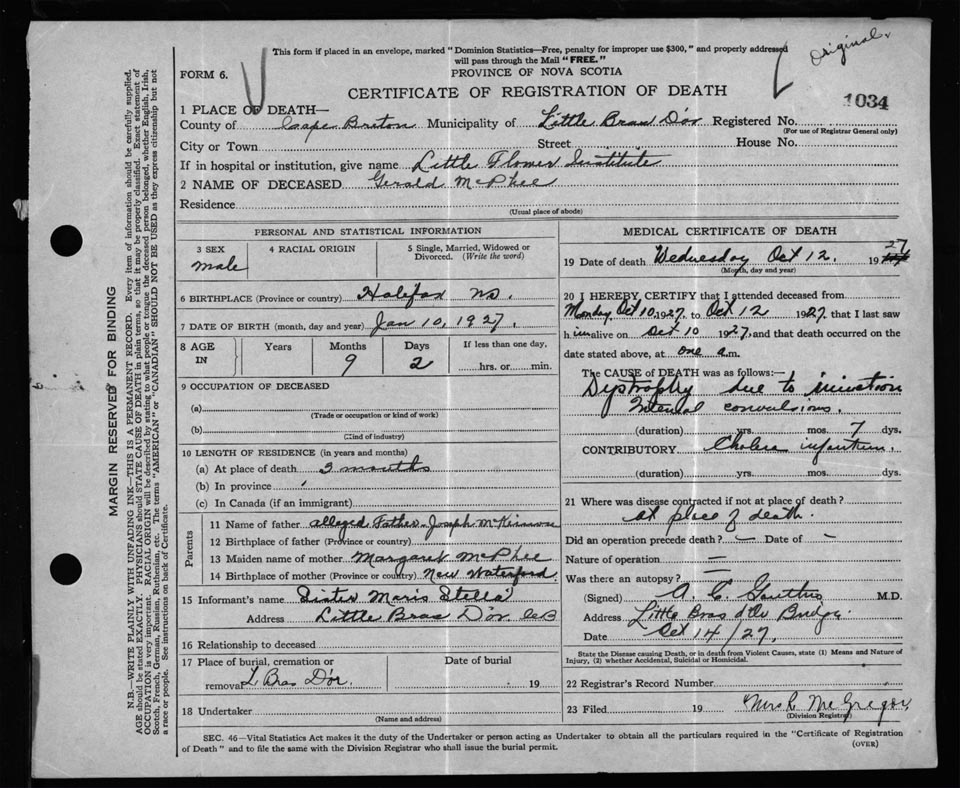 Original
This form if placed in an envelope, marked "Dominion Statistics—Free, penalty for improper use $300," and properly addressed
will pass through the Mail "FREE."
FORM 6.
PROVINCE OF NOVA SCOTIA
CERTIFICATE OF REGISTRATION OF DEATH
1034
1 PLACE OF DEATH—
County of Cape Breton Municipality of Little Bras D'or Registered No.
(For use of Registrar General only)
City or Town Street House No.
If in hospital or institution, give name Little Flower Institute
2 NAME OF DECEASED Gerald McPhee
Residence
(Usual place of abode)
PERSONAL AND STATISTICAL INFORMATION
3 SEX 4 RACIAL ORIGIN 5 Single, Married, Widowed or
Divorced. (Write the word)
male
6 BIRTHPLACE (Province or country) Halifax NS.
7 DATE OF BIRTH (month, day and year) Jan 10, 1927.
8 AGE IN Years Months Days If less than one day,
9 2 hrs. or min.
9 OCCUPATION OF DECEASED
(a)
(Trade or occupation or kind of work)
(b)
(Kind of industry)
10 LENGTH OF RESIDENCE (in years and months)
(a) At place of death 3 months
(b) In province
(c) In Canada (if an immigrant)
Parents
11 Name of father alleged Father Joseph McKinnon
12 Birthplace of father (Province or country)
13 Maiden name of mother Margaret McPhee
14 Birthplace of mother (Province or country) New Waterford
15 Informant's name Sister Maris Stella
Address Little Bras D'or CB
16 Relationship to deceased
17 Place of burial, cremation or Date of burial
removal L Bras D'or. 19
18 Undertaker
(Name and address)
MEDICAL CERTIFICATE OF DEATH
19 Date of death Wednesday Oct 12, 1927
(Month, day and year)
20 I HEREBY CERTIFY that I attended deceased from
Monday Oct 10, 1927, to Oct 12 1927, that I last saw
him alive on Oct 10 1927, and that death occurred on the
date stated above, at one a.m.
The CAUSE of DEATH was as follows:—
Dystrophy due to inanition
convulsions.
(duration) yrs. mos. 7 dys.
CONTRIBUTORY Cholera infantum.
(duration) yrs. mos. dys.
21 Where was disease contracted if not at place of death?
at place of death.
Did an operation precede death? — Date of —
Nature of operation —
Was there an autopsy? —
(Signed) A. C. M.D.
Address Little Bras d'Or Bridge
Date Oct 14/27.
State the Disease causing Death, or in death from Violent Causes, state (1) Means and Nature of
Injury, (2) whether Accidental, Suicidal or Homicidal.
22 Registrar's Record Number
23 Filed 19 Mrs C McGregor
(Division Registrar)
SEC. 46—Vital Statistics Act makes it the duty of the Undertaker or person acting as Undertaker to obtain all the particulars required in the "Certificate of Registration
of Death" and to file the same with the Division Registrar who shall issue the burial permit.
(OVER)
MARGIN RESERVED FOR BINDING
N.B.—WRITE PLAINLY WITH UNFADING INK—THIS IS A PERMANENT RECORD. Every item of information should be carefully supplied.
AGE should be stated EXACTLY. PHYSICIANS should STATE CAUSE OF DEATH in plain terms, so that it may be properly classified. Exact statement of
OCCUPATION is very important. RACIAL ORIGIN will be described by stating to what people or tongue the deceased person belonged, whether English, Irish,
Scotch, French, German, Russian, Ruthenian, etc. The terms "AMERICAN" or "CANADIAN" SHOULD NOT BE USED as they express citizenship but not
a race or people. See instructions on back of Certificate.